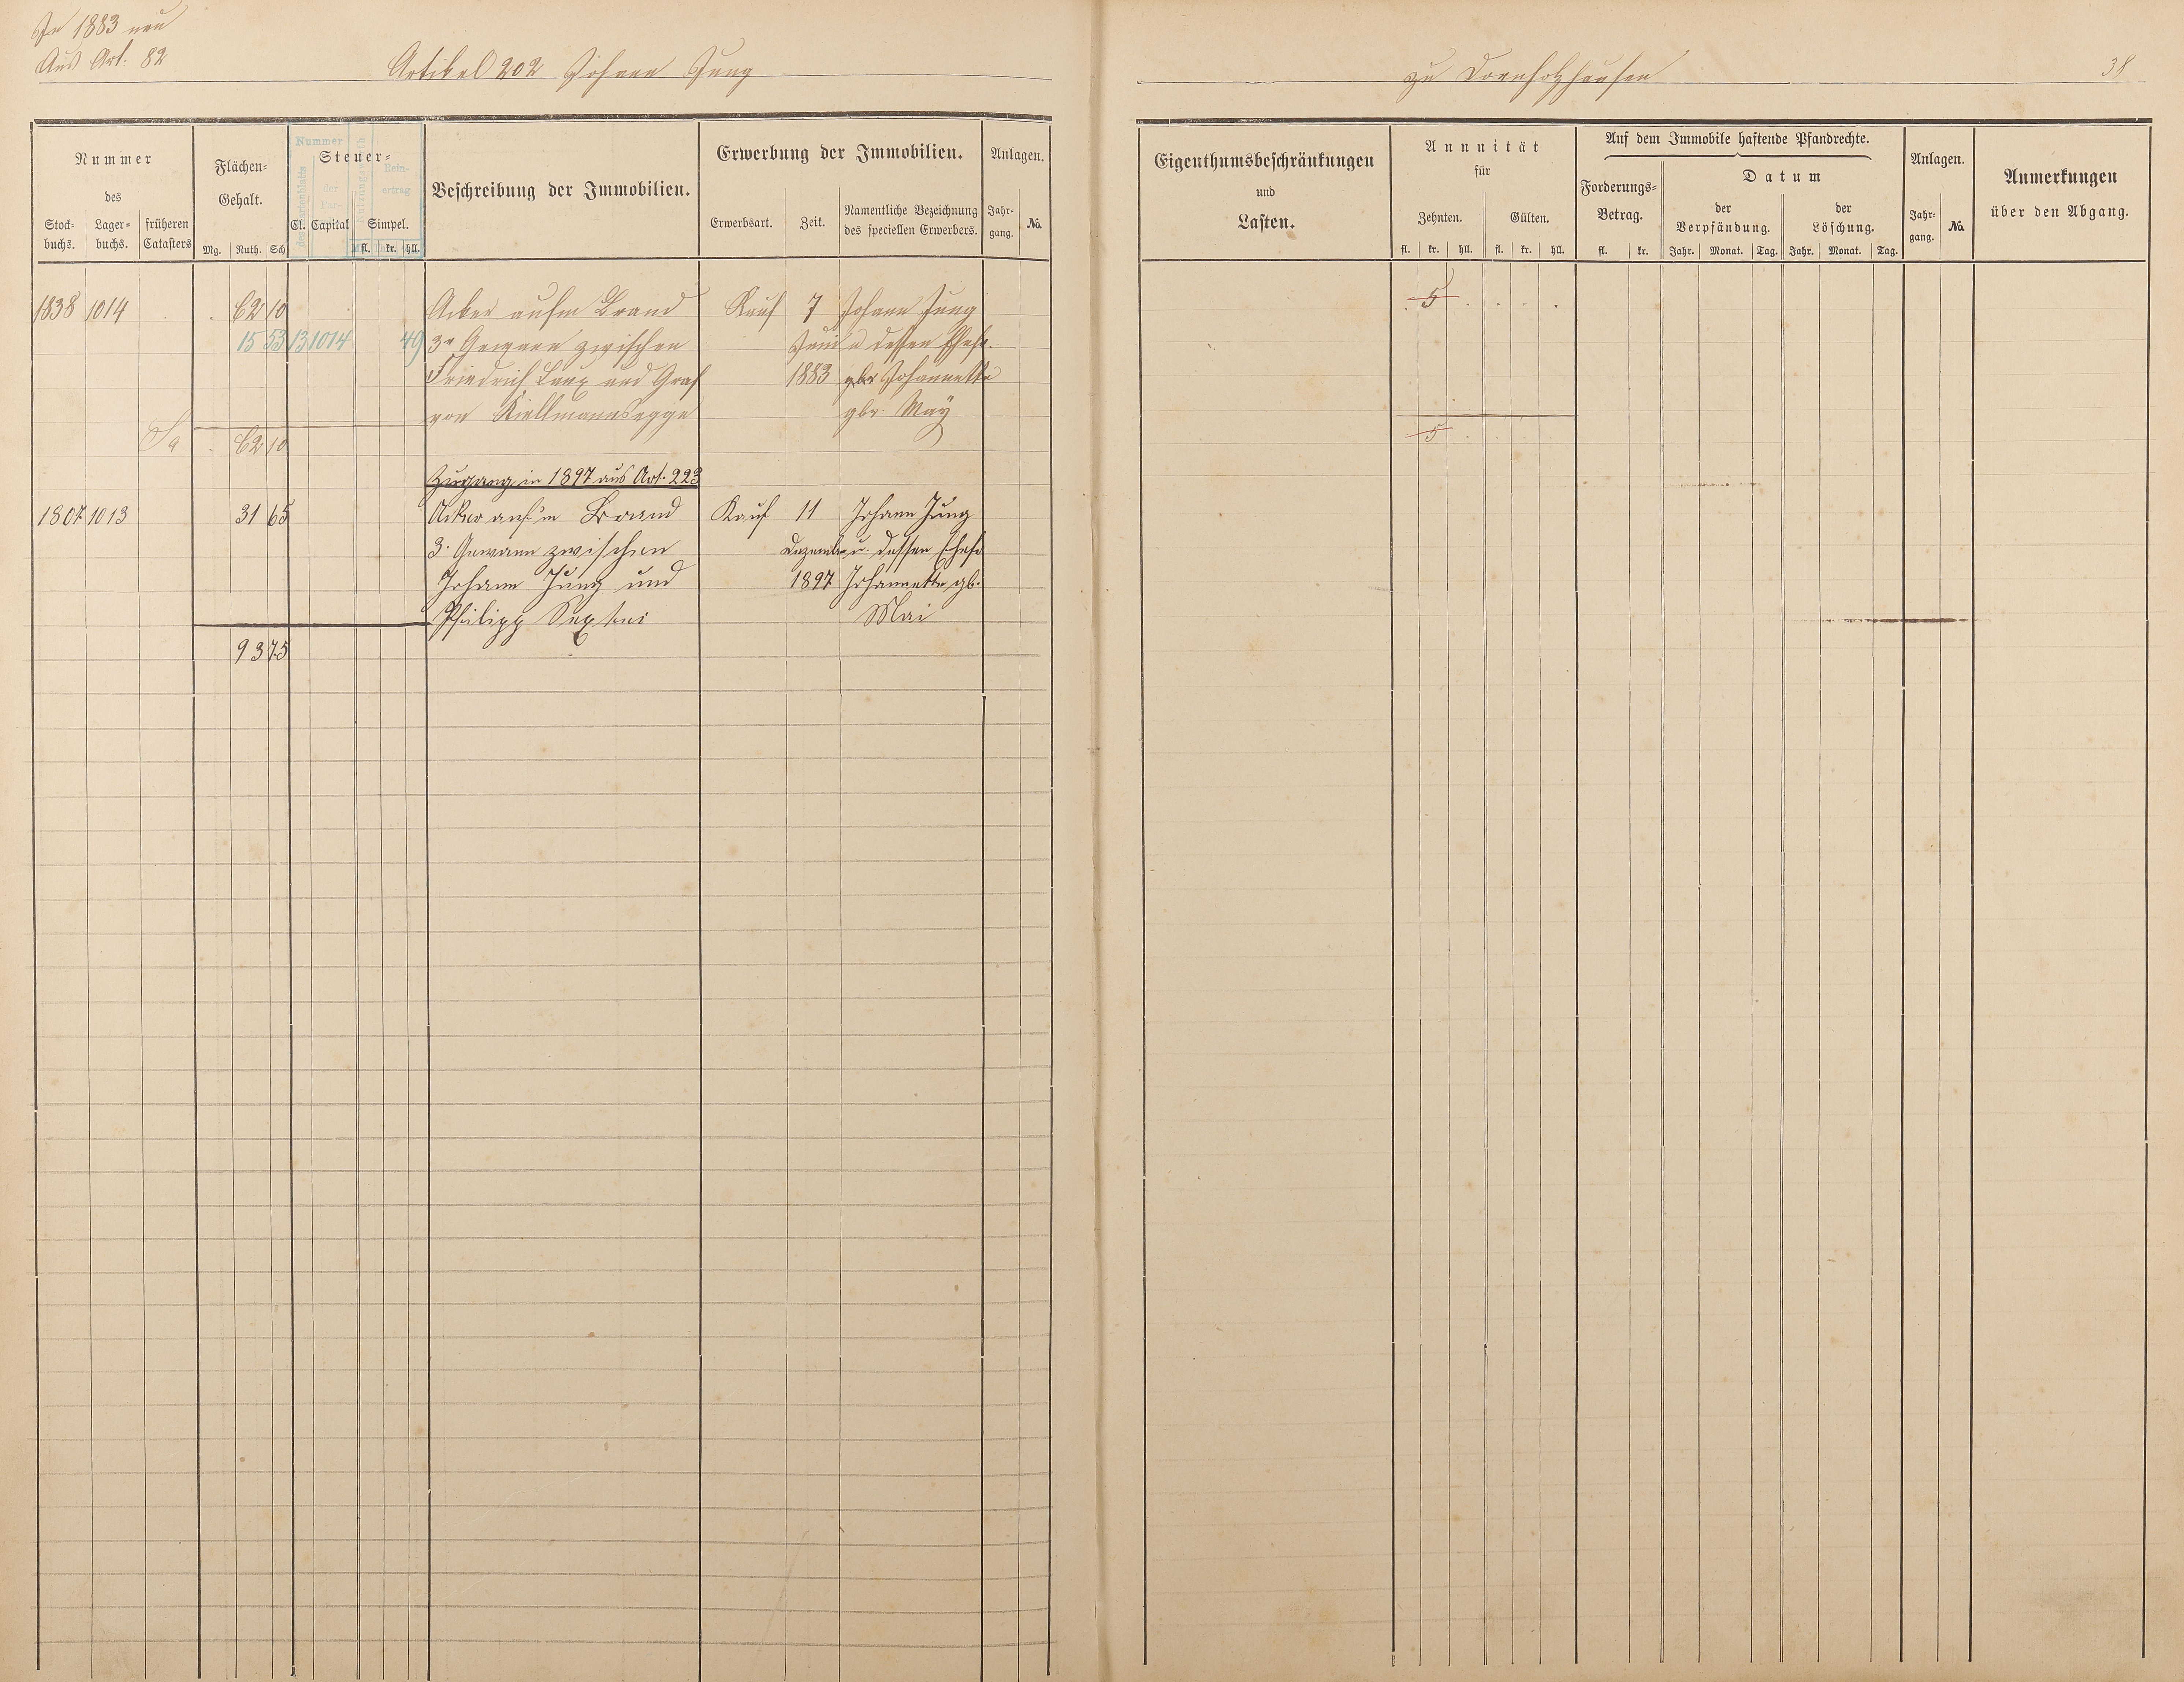 In 1883 neu
Aus Art. 82
Artikel 202 Johann Jung
zu Dornholzhausen
38
Nummer
des
Stock-buchs.
Lager-buchs.
früheren Catasters
Flächen-Gehalt.
Mg. Ruth. Sch
Steuer-
Cl. Capital
Simpel.
fl. kr. hll.
Nummer
des Kartenblatts
der
Rein-ertrag
Beschreibung der Immobilien.
Erwerbung der Immobilien.
Erwerbsart.
Zeit.
Namentliche Bezeichnung des speciellen Erwerbers.
Anlagen.
Jahr-gang.
No.
Eigenthumsbeschränkungen
und
Lasten.
Annuität
für
Zehnten.
Gülten.
fl. kr. hll. fl. kr. hll.
Auf dem Immobile haftende Pfandrechte.
Forderungs-Betrag.
fl. kr.
Datum
der Verpfändung.
der Löschung.
Jahr. Monat. Tag. Jahr. Monat. Tag.
Anlagen.
Jahr-gang.
No.
Anmerkungen
über den Abgang.
1838 1014 62 10 Acker aufm Brand Kauf 7 Johann Jung 5
15 53 13 1014 49 3r Gewann zwischen Juni u dessen Ehefr.
Friedrich Laux und Graf 1883 gbr Johannette
von Kiellmannsegge gbr. May
Sa 62 10 5
Zugang in 1897 aus Art. 223
1807 1013 31 65 Acker auf'm Brand Kauf 11 Johann Jung
3. Gewann zwischen Dezemb. u. dessen Ehefr
Johann Jung und 1897 Johannette gb.
Philipp Mai
93 75